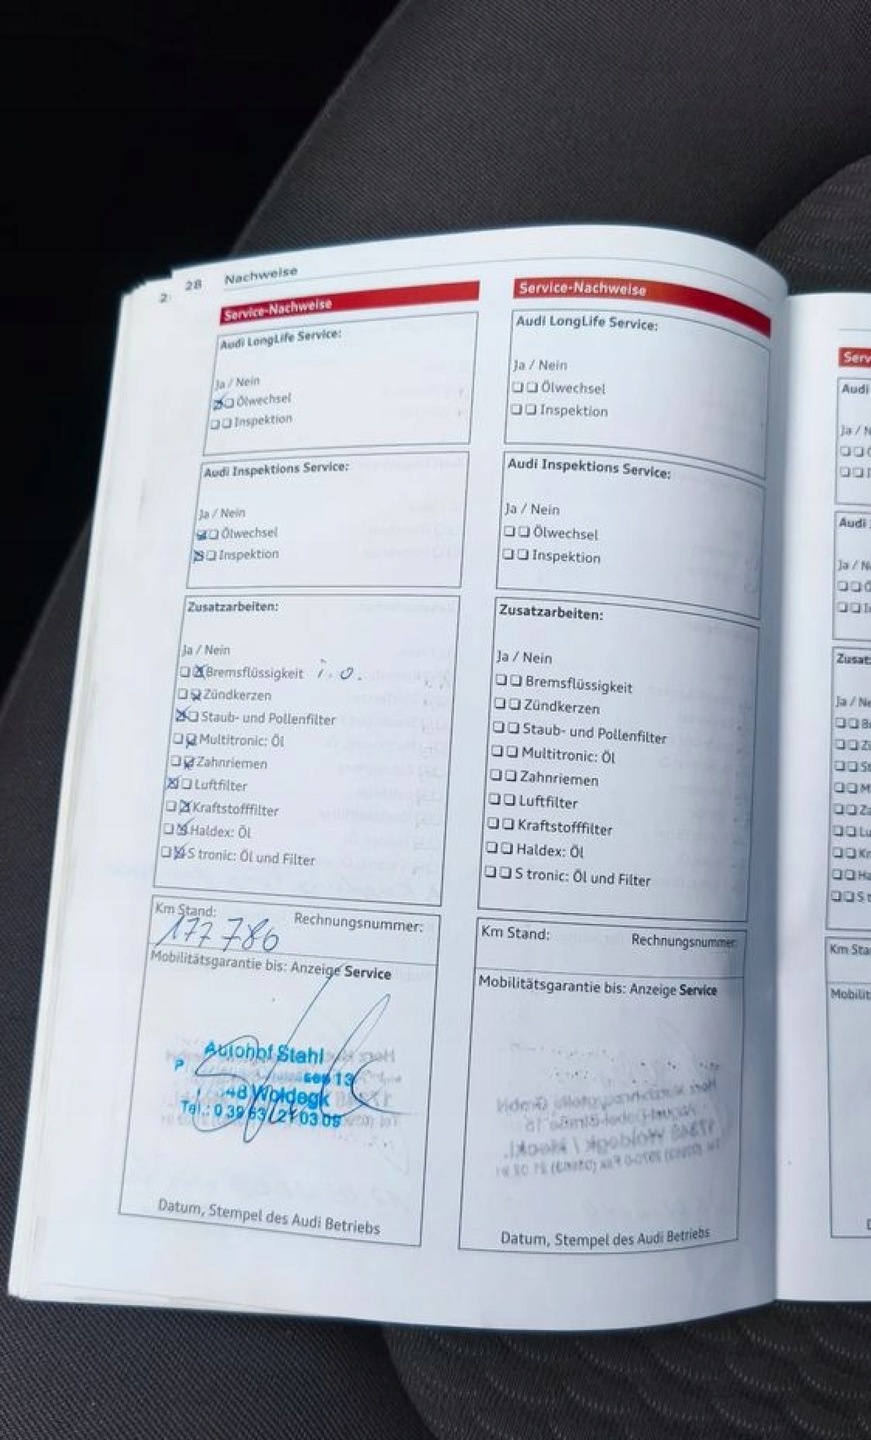 28 Nachweise
2
Service-Nachweise
Audi LongLife Service:
Ja / Nein
Ölwechsel
Inspektion
Audi Inspektions Service:
Ja / Nein
Ölwechsel
Inspektion
Zusatzarbeiten:
Ja / Nein
Bremsflüssigkeit i.o.
Zündkerzen
Staub- und Pollenfilter
Multitronic: Öl
Zahnriemen
Luftfilter
Kraftstofffilter
Haldex: Öl
S tronic: Öl und Filter
Km Stand: Rechnungsnummer:
177 786
Mobilitätsgarantie bis: Anzeige Service
Autohof Stahl
P 13
48 Woldegk
Tel.: 0 39 63 / 21 03 09
Datum, Stempel des Audi Betriebs
Service-Nachweise
Audi LongLife Service:
Ja / Nein
Ölwechsel
Inspektion
Audi Inspektions Service:
Ja / Nein
Ölwechsel
Inspektion
Zusatzarbeiten:
Ja / Nein
Bremsflüssigkeit
Zündkerzen
Staub- und Pollenfilter
Multitronic: Öl
Zahnriemen
Luftfilter
Kraftstofffilter
Haldex: Öl
S tronic: Öl und Filter
Km Stand: Rechnungsnummer:
Mobilitätsgarantie bis: Anzeige Service
Datum, Stempel des Audi Betriebs
Serv
Audi
Ja / N
Audi
Ja / N
Zusat
Ja / Ne
Km Sta
Mobilit